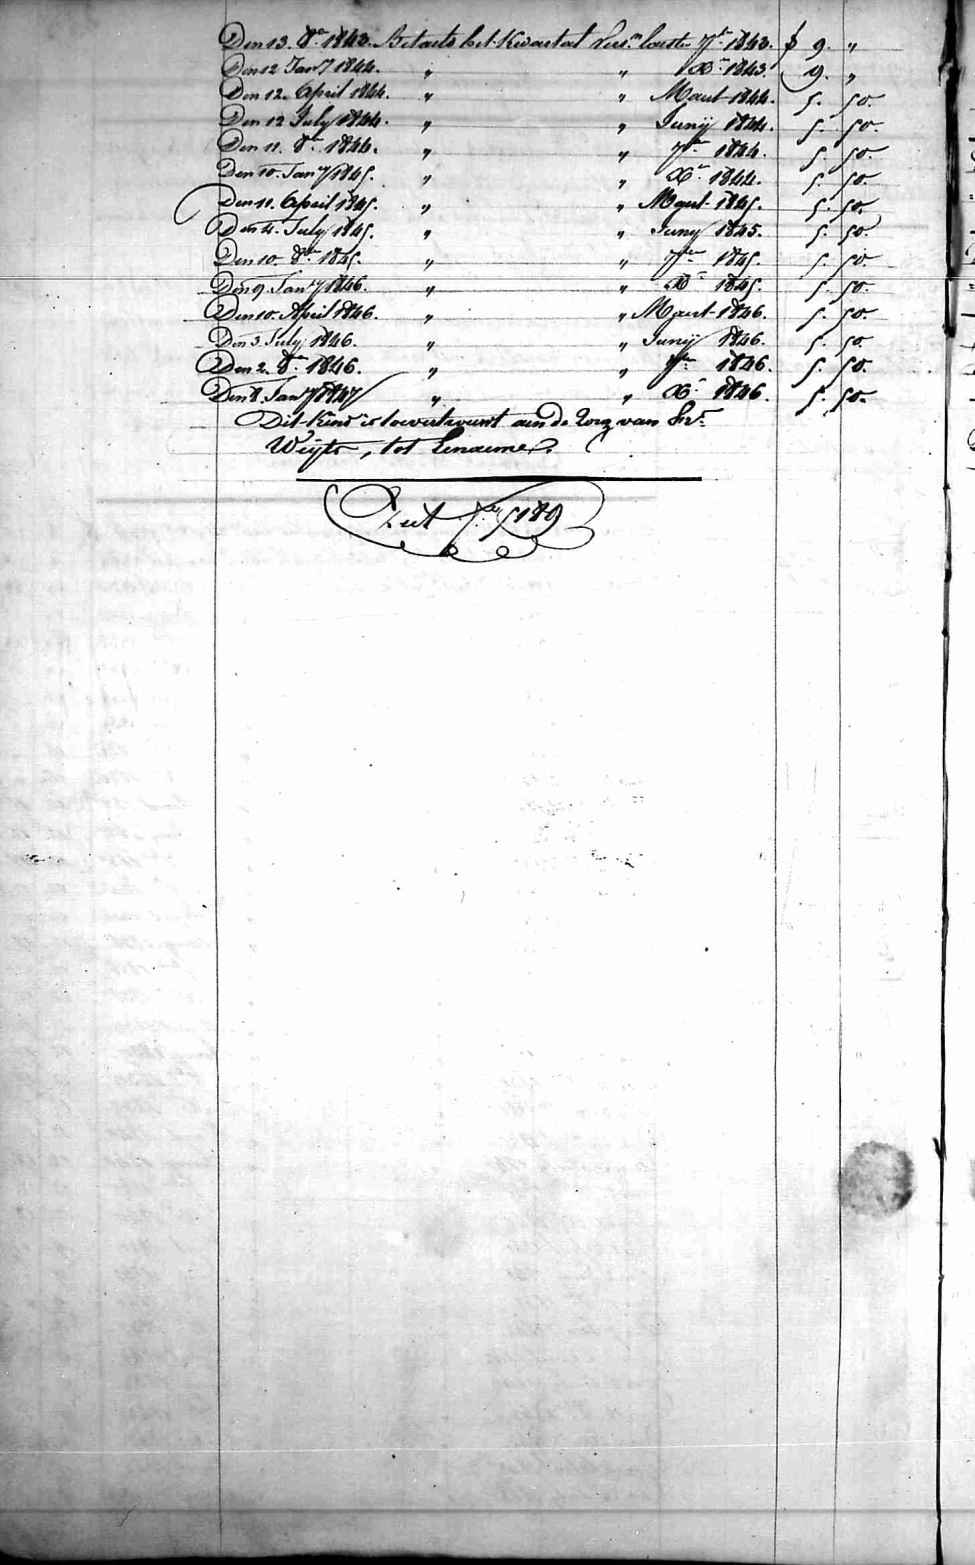 Den 13. 8re 1843. Betaelt het Kwartael laetste 7bre 1843. $ 9. "
Den 12 Jany 1844. " " Xbre 1843. 9. "
Den 12. April 1844. " " Maert 1844. 5. 50.
Den 12 July 1844. " " Junij 1844. 5. 50.
Den 11. 8re 1844. " " 7bre 1844. 5. 50.
Den 10. Jany 1845. " " Xbre 1844. 5. 50.
Den 11. April 1845. " " Maert 1845. 5. 50.
Den 4. July 1845. " " Juny 1845. 5. 50.
Den 10. 8bre 1845. " " 7bre 1845. 5. 50.
Den 9. Jany 1846. " " Xbre 1845. 5. 50.
Den 10. April 1846. " " Maert 1846. 5. 50.
Den 3. July 1846. " " Junij 1846. 5. 50.
Den 2. 8re 1846. " " 7bre 1846. 5. 50.
Den 8. Jany 1847 " " Xbre 1846. 5. 50.
Dit Kind is toevertrouwt aen de Zorg van Sr.
Weyts, tot Ename.
Ziet 189